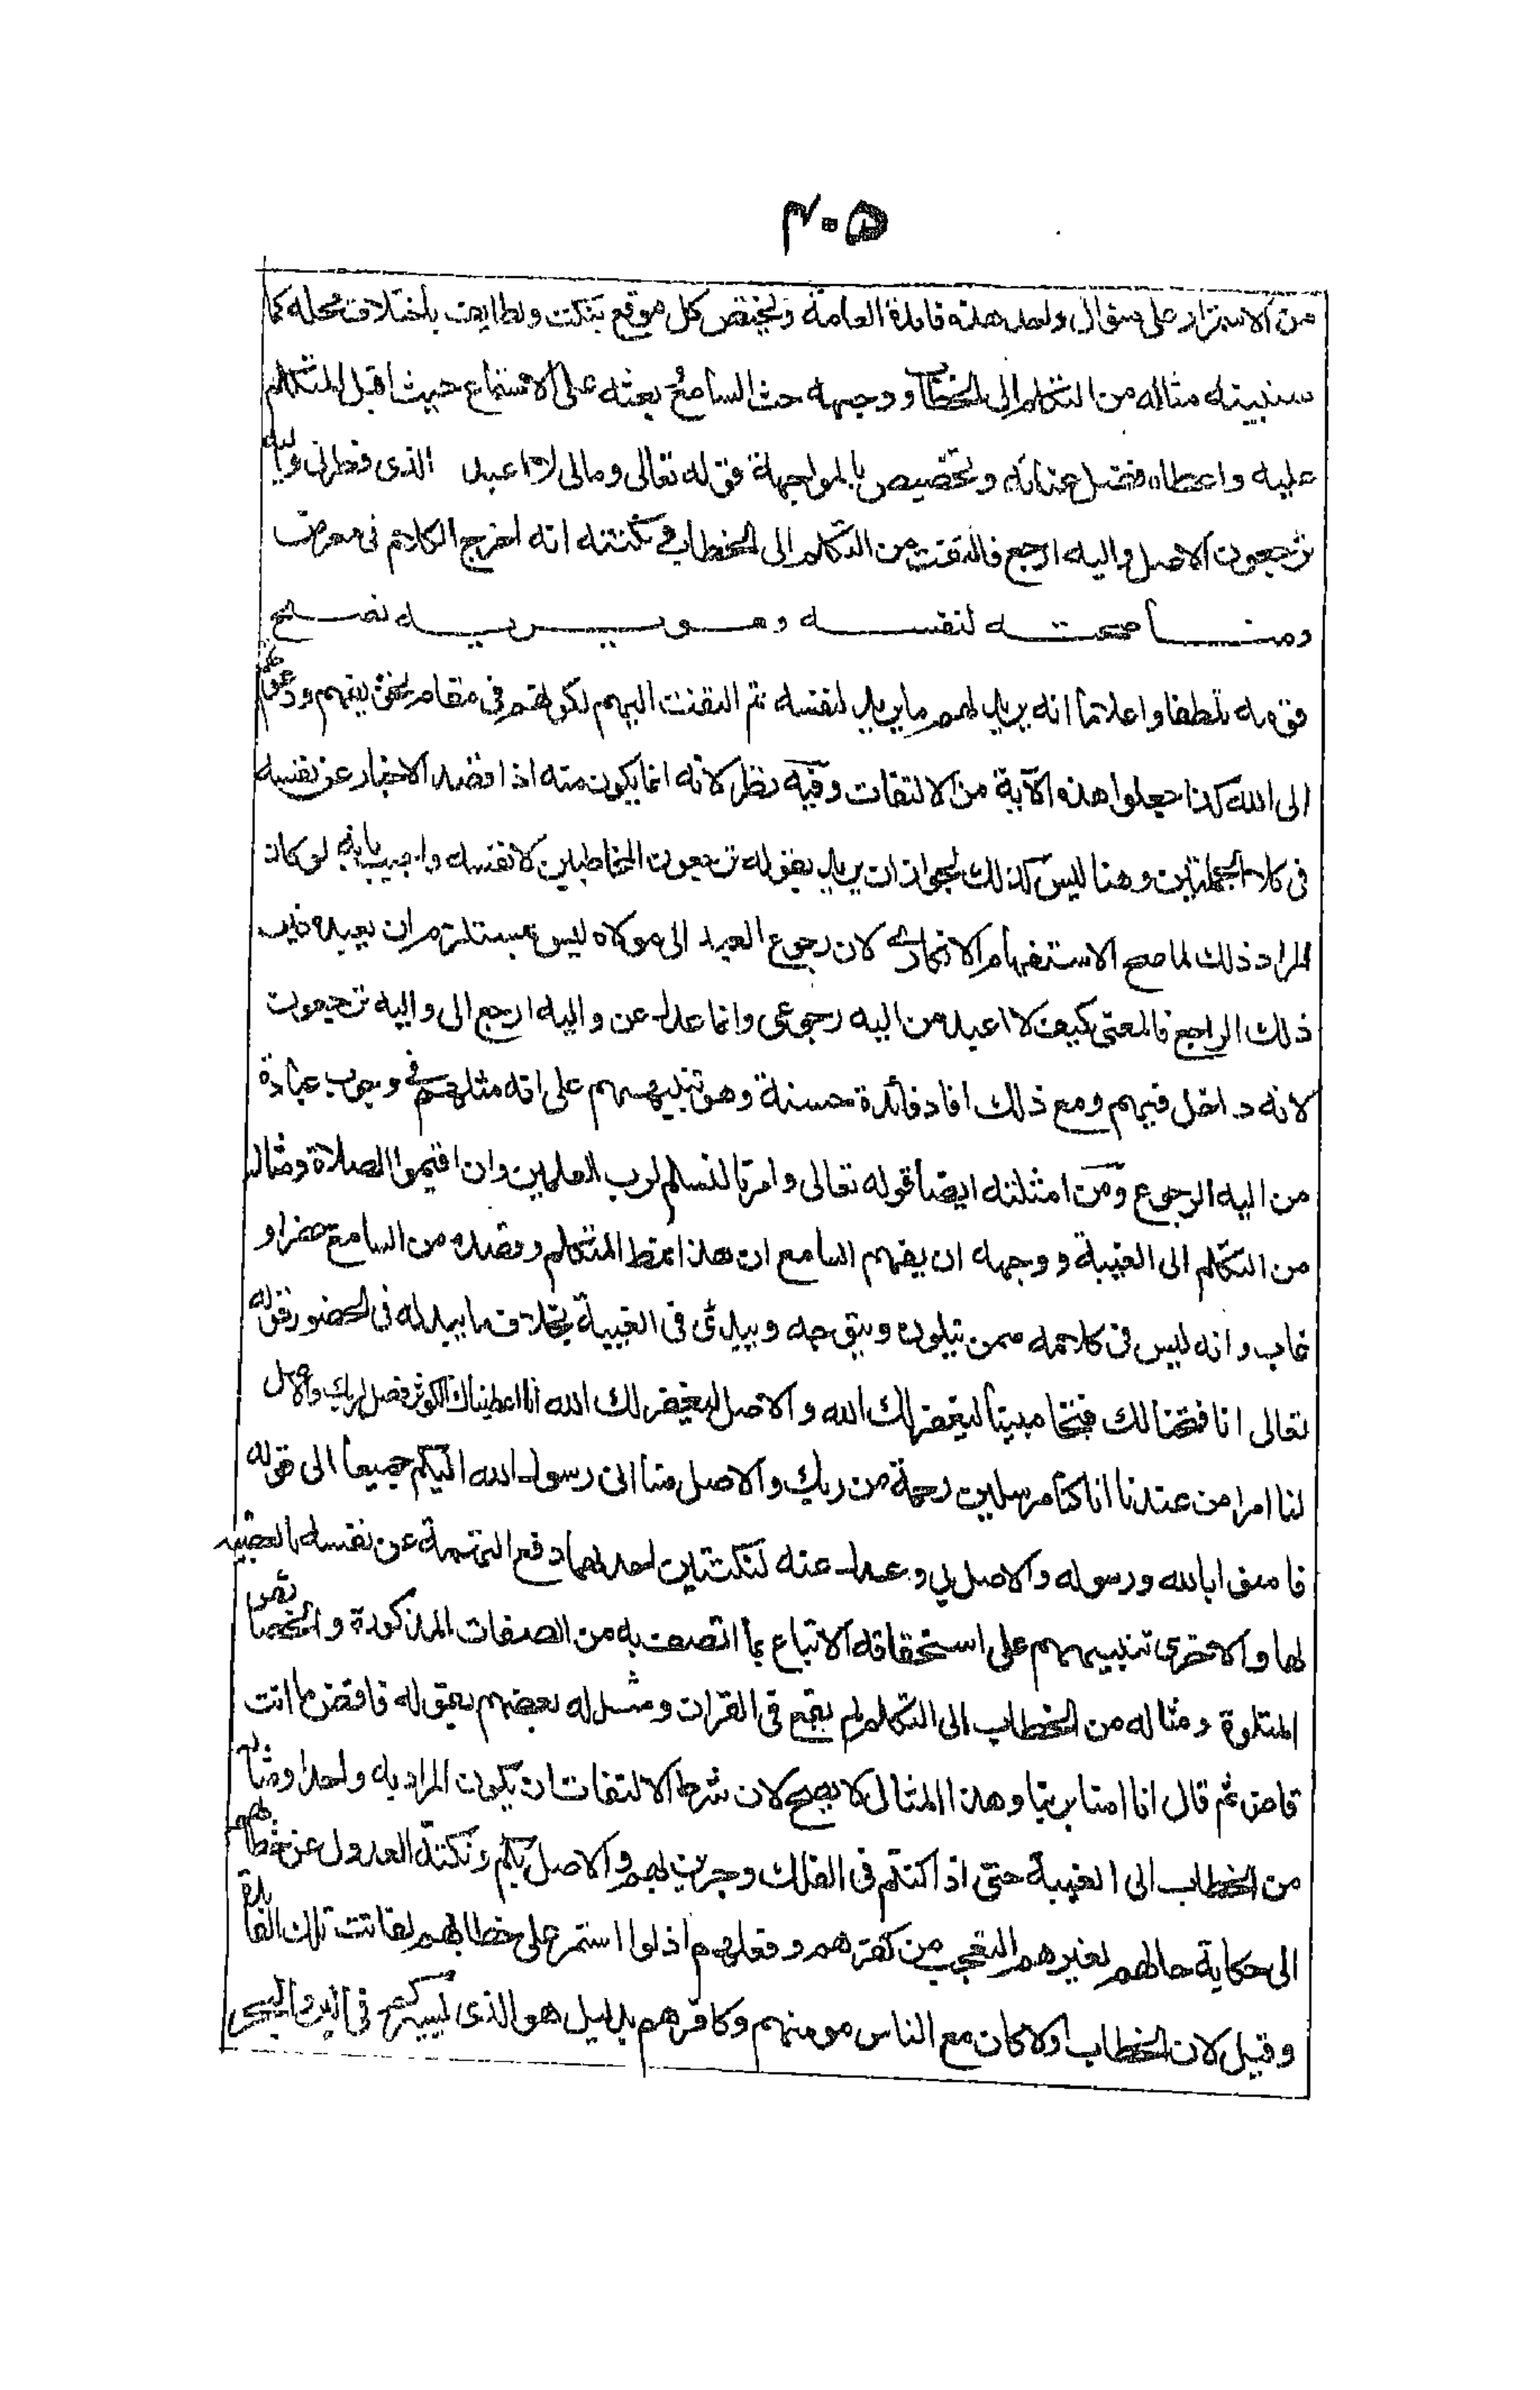 ٣٠٥
من الاستمرار على منوال واحد هذه فايدة العامة ويختص كل موقع بنكت ولطايف باختلاف محله كما
سنبينه مثاله من التكلم الى الخطاب ووجهه حث السامع وبعثه على الاستماع حيث اقبل المتكلم
عليه واعطاه فضل عنايه وتخصيص بالمواجهة قوله تعالى ومالى لا اعبد الذى فطرنى واليه
ترجعون الاصل واليه ارجع فالتفت من التكلم الى الخطاب ونكتته انه اخرج الكلام فى معرض
ومناصحته لنفسه وهو يريد نصح
قومه تلطفا واعلاما انه يريد لهم ما يريد لنفسه ثم التفت اليهم لكونهم فى مقام تخويفهم ودعوتهم
الى الله كذا جعلوا هذه الآية من الالتفات وفيه نظر لانه انما يكون منه اذا قصد الاخبار عن نفسه
فى كلا الجملتين وهنا ليس كذلك لجواز ان يريد بقوله ترجعون المخاطبين لا نفسه واجيب بانه لو كان
المراد ذلك لما صح الاستفهام الانكارى لان رجوع العبد الى مولاه ليس بمستلزم ان يعبده غير
ذلك الراجع فالمعنى كيف لا اعبد من اليه رجوعى وانما عدل عن واليه ارجع الى واليه ترجعون
لانه داخل فيهم ومع ذلك افاد فائدة حسنة وهو تنبيههم على انه مثلهم فى وجوب عبادة
من اليه الرجوع ومن امثلته ايضا قوله تعالى وامرنا لنسلم لرب العلمين وان اقيموا الصلاة ومثاله
من التكلم الى الغيبة ووجهه ان يفهم السامع ان هذا نمط المتكلم وقصده من السامع حضر او
غاب وانه ليس فى كلامه ممن يتلون ويتوجه ويبدى فى الغيبة بخلاف ما يبديه فى الحضور قوله
تعالى انا فتحنا لك فتحا مبينا ليغفر لك الله والاصل لنغفر لك الله انا اعطيناك الكوثر فصل لربك والاصل
لنا امرا من عندنا انا كنا مرسلين رحمة من ربك والاصل منا انى رسول الله اليكم جميعا الى قوله
فامنوا بالله ورسوله والاصل بى وعدل عنه لنكتتين احدهما دفع التهمة عن نفسه بالعصبية
لها والاخرى تنبيههم على استحقاقه الاتباع بما اتصف به من الصفات المذكورة والخصائص
المتلوة ومثاله من الخطاب الى التكلم لم يقع فى القران ومثل له بعضهم بقوله فاقض ما انت
قاض ثم قال انا امنا بربنا وهذا المثال لا يصح لان شرط الالتفات ان يكون المراد به واحدا ومثاله
من الخطاب الى الغيبة حتى اذا كنتم فى الفلك وجرين بهم والاصل بكم ونكتة العدول عن خطابهم
الى حكاية حالهم لغيرهم التعجب من كفرهم وفعلهم اذ لوا استمر على خطابهم لفاتت تلك الفائدة
وقيل لان الخطاب اولا كان مع الناس مومنهم وكافرهم بدليل هو الذى يسيركم فى البر والبحر